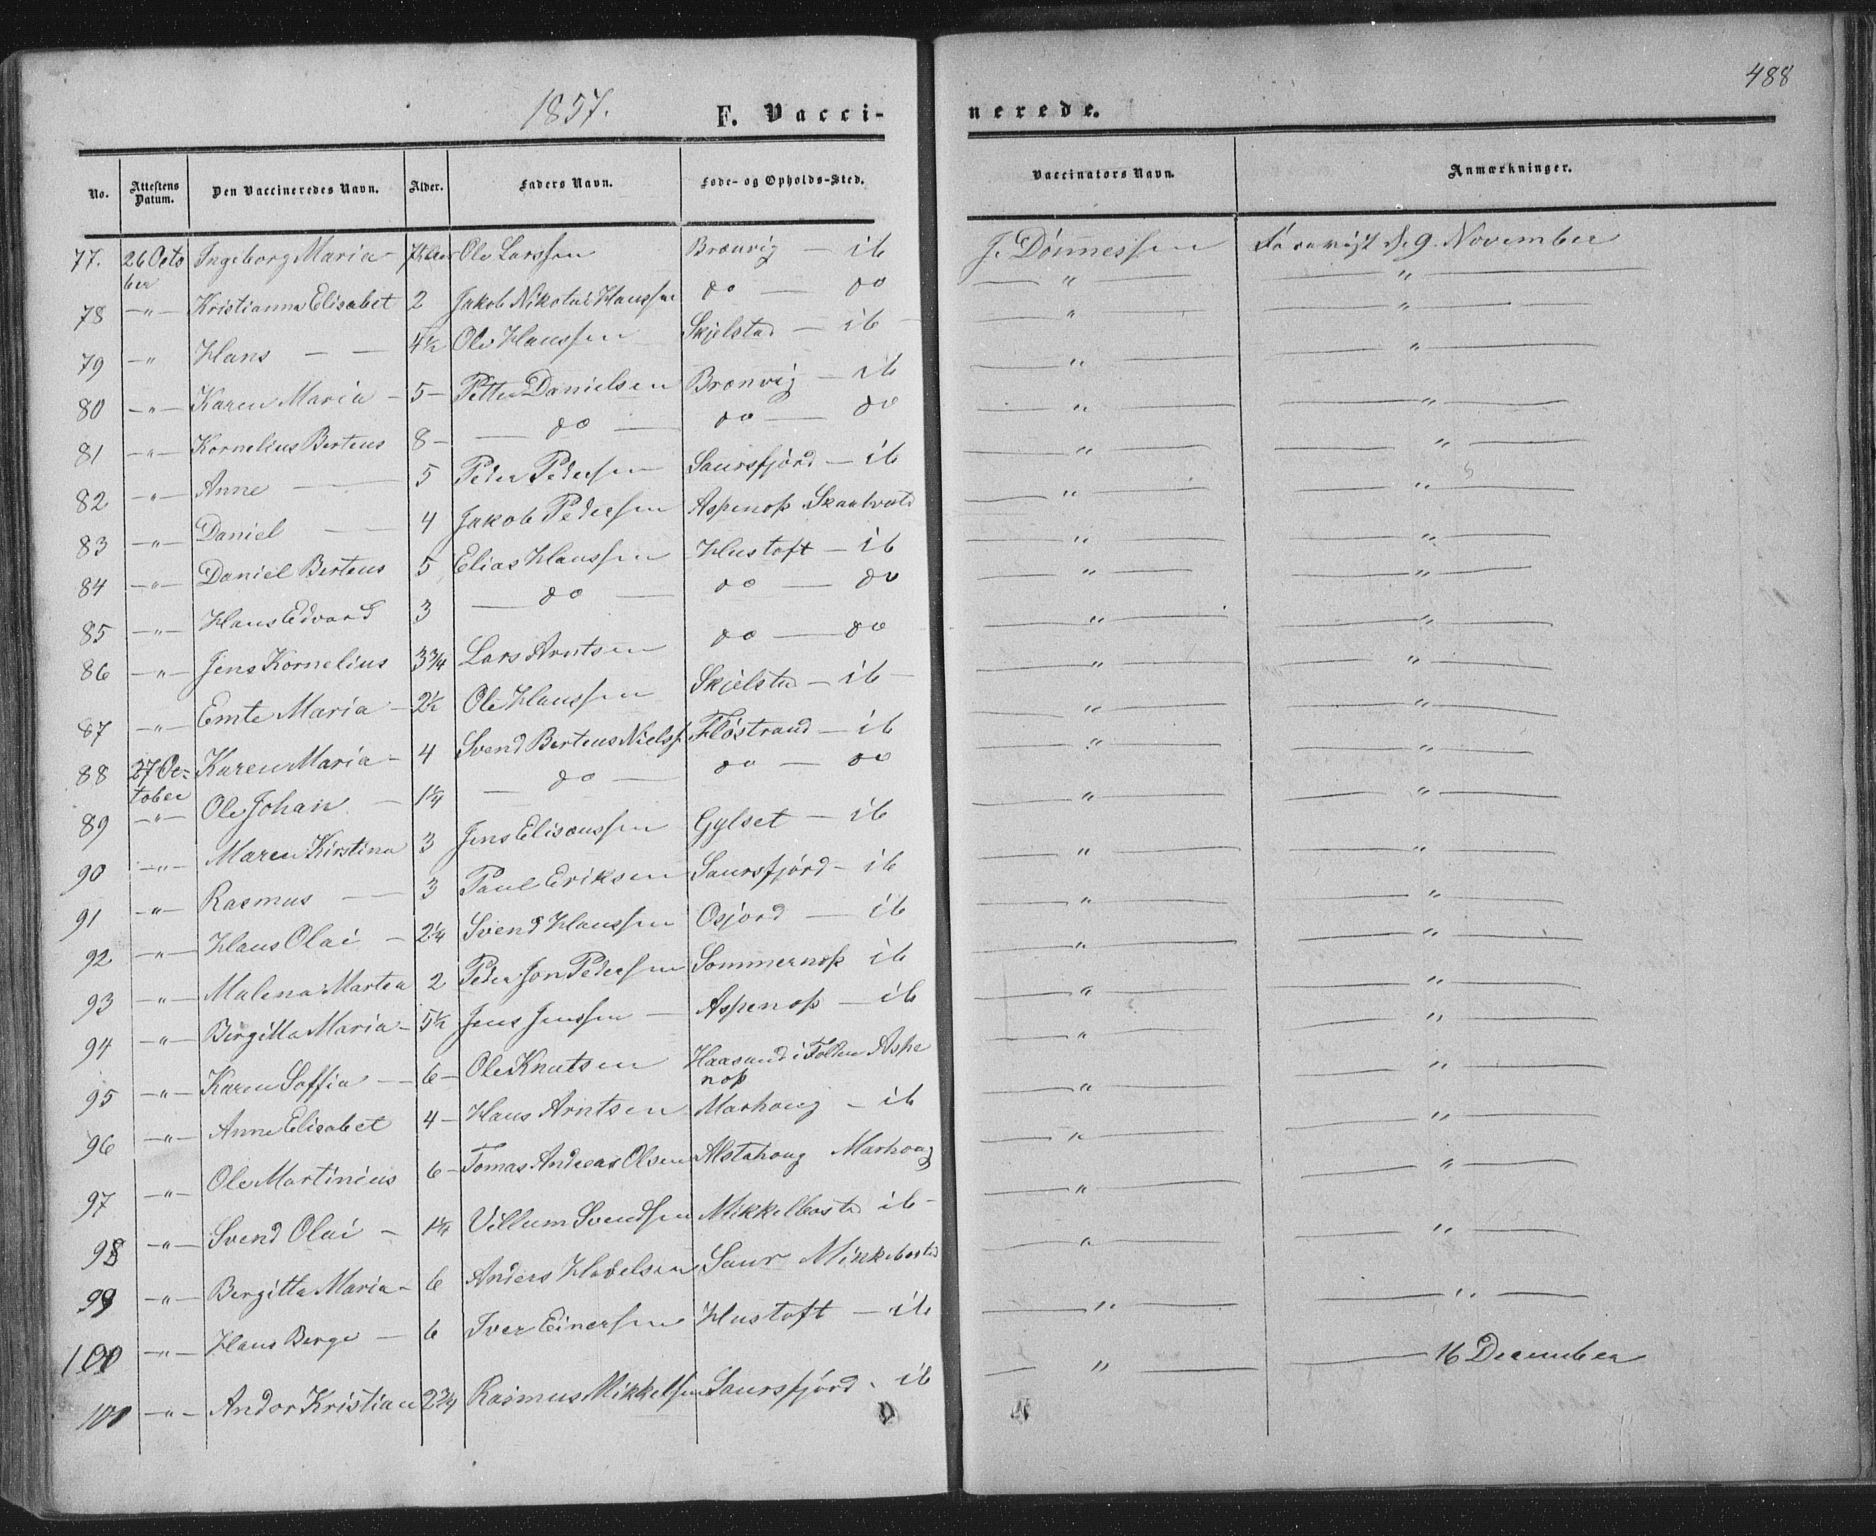 488
1857.
F. Vaccinerede.
No. Attestens Datum. Den Vaccineredes Navn. Alder. Faders Navn. Føde- og Opholds-Sted. Vaccinators Navn. Anmærkninger.
77. 26 October Ingeborg Maria - Ole Larssen Brænvig — ib J. Dønnessen 9 November
78 —"— Kristianna Elisabet 2 Jakob Nikolai Hanssen do — do " "
79 —"— Hans — — 4½ Ole Hanssen Skjelstad — ib — " "
80 —"— Karen Maria - 5 - Petter Danielsen Brænvig — ib " "
81 —"— Kornelius Berteus 8 - — do — do — do " "
82 —"— Anne — 5 Peder Pedersen Saursfjord — ib " "
83 —"— Daniel — 4 Jakob Pedersen Aspenøs Skaalvold " "
84 —"— Daniel Berteus 5 Elias Hanssen Hustoft — ib " "
85 —"— Hans Edvard 3 — do — do — do " "
86 —"— Jens Kornelius 3¾ Lars Arntsen do — do " "
87 —"— Emte Maria - 2½ Ole Hanssen Skjelstad — ib — " "
88 27 October Karen Maria - 4 Svend Berteus Nielss Fløstrand — ib " "
89 —"— Ole Johan — 1¼ — do — do — do " "
90 —"— Maren Kirstina 3 Jens Elisæussen Gylset — ib " "
91 —"— Rasmus — 3 Paul Eriksen Saursfjord - ib " "
92 —"— Hans Olai - 2¼ Svend Hanssen Osjord — ib " "
93 —"— Malena Martea 2 Peder Jon Pedersen Sommernøs ib " "
94 —"— Birgitta Maria - 5½ Jens Jenssen — Aspenøs — ib " "
95 —"— Karen Soffia — 6 - Ole Knutsen Haasund i Folden Aspenøs " "
96 —"— Anne Elisabet 4 - Hans Arntsen Marhaug - ib " "
97 —"— Ole Martinius 6 - Tomas Andreas Olsen Alstahoug Marhoug " "
98 —"— Svend Olai - 1¼ Villum Svendsen Mikkelbostad ib - " "
99 —"— Bergitta Maria - 6 Anders Habelsen Saur Mikkebostad " "
100 —"— Hans Berge — 6 Iver Einersen Hustoft — ib " "
101 —"— Andor Kristian 2¾ Rasmus Mikkelsen Saursfjord - ib " — 16 December